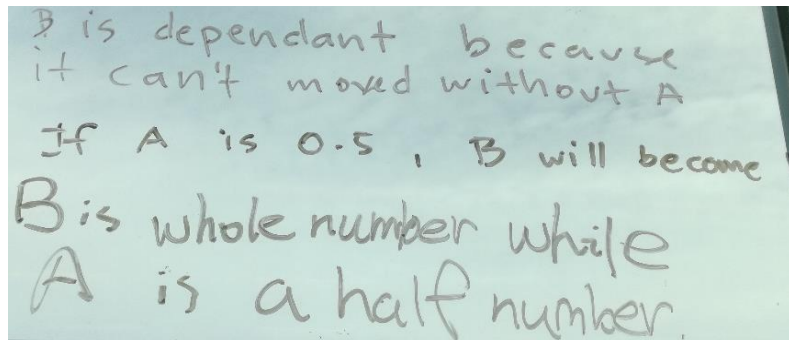 B is dependant because
it can't moved without A
If A is 0.5, B will become
B is whole number while
A is a half number.